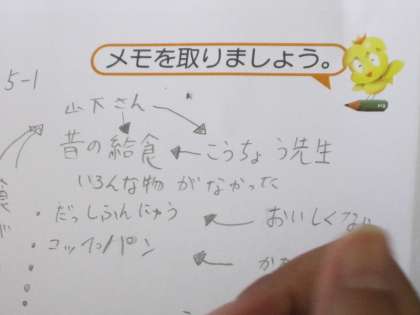 メモを取りましょう。
5-1
山下さん
昔の給食 こうちょう先生
いろんな物がなかった
・だっしふんにゅう おいしくな
・コッペパン か